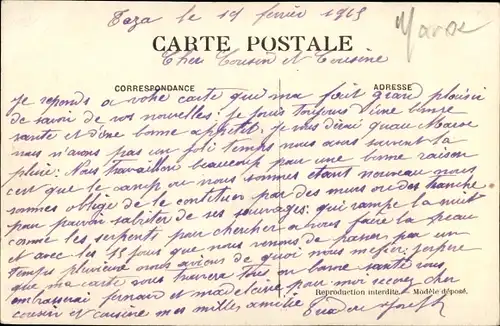 Taza le 19 février 1915
Maroc
CARTE POSTALE
Cher Cousin et Cousine
CORRESPONDANCE
ADRESSE
Je reponds a votre carte que ma fait grand plaisir
de savoir de vos nouvelles: je jouis toujours d'une bonne
sante et d'une bonne appetit. Je vous dirai quau Maroc
nous n'avons pas un joli temps nous avons souvent la
pluie: Nous travaillon beaucoup pour une bonne raison
cest que le camp ou nous sommes etant nouveau nous
sommes oblige de le contituer par des murs ou des tranche
pour pouvoir sabriter de ses sauvages: qui rampe la nuit
comme les serpents pour chercher a nous faire la peau
et avec les 15 jours que nous venons de passer par un
temps pluvieux nous avions de quoi nous mefier. jespere
que ma carte vous trouvera tous en bonne santé vous
embrasserai fernand et madeleine pour moi recevez cher
cousin et cousine mes milles amitie
Joseph
Reproduction interdite. — Modèle déposé.